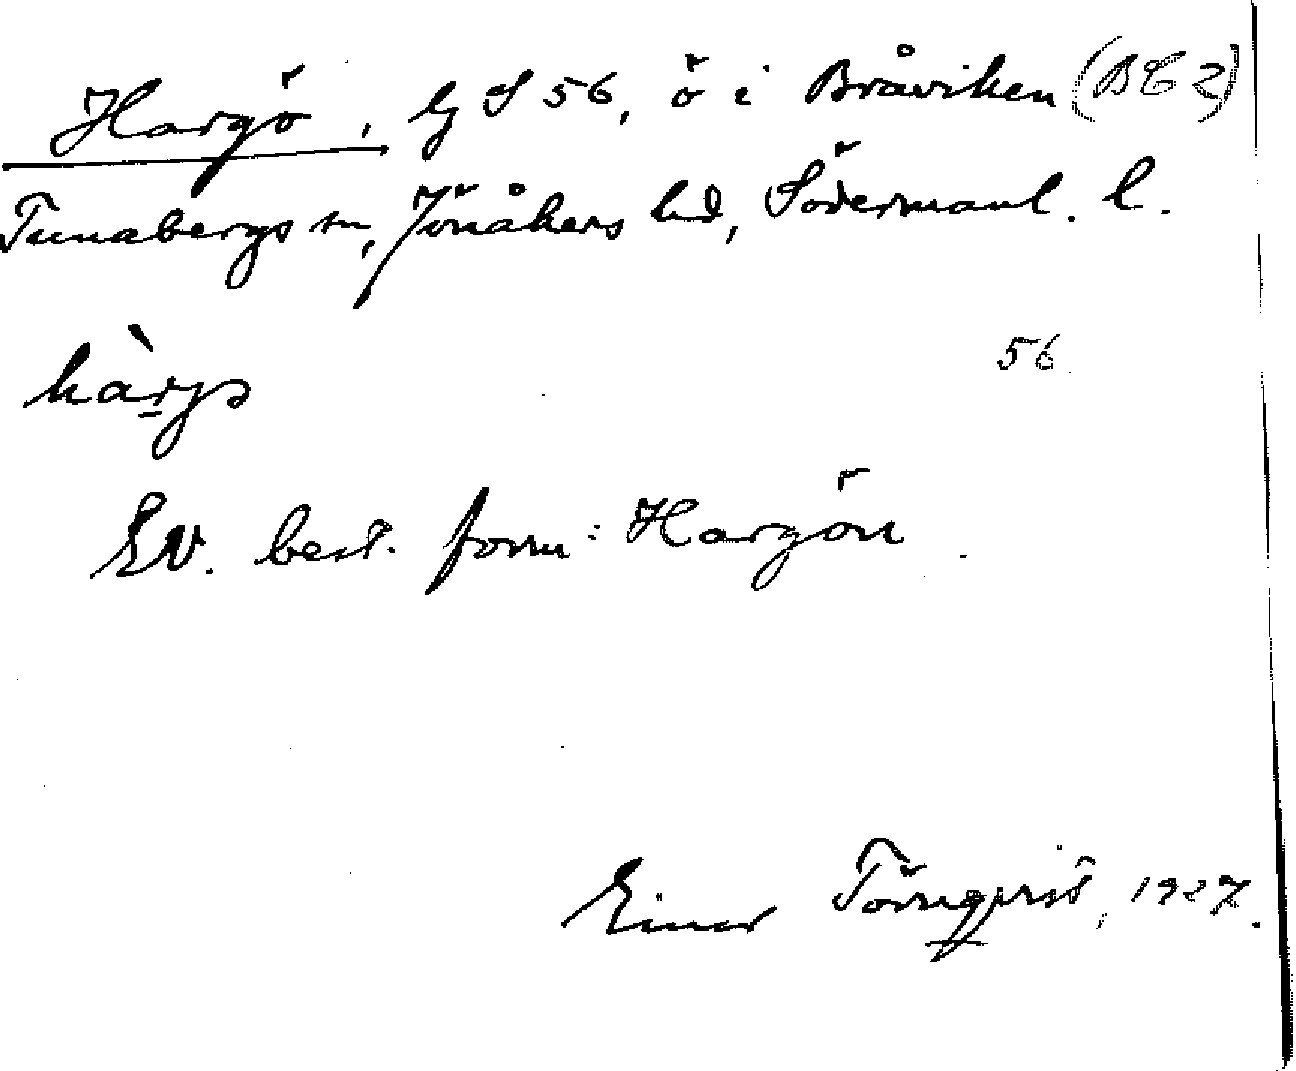 Hargö, Gj S 56, ö i Bråviken (BC 2)
Tunabergs sn, Jönåkers hd, Södermanl. l.
56
Ev. best. form: Hargön.
Einar Törnqvist, 1927.